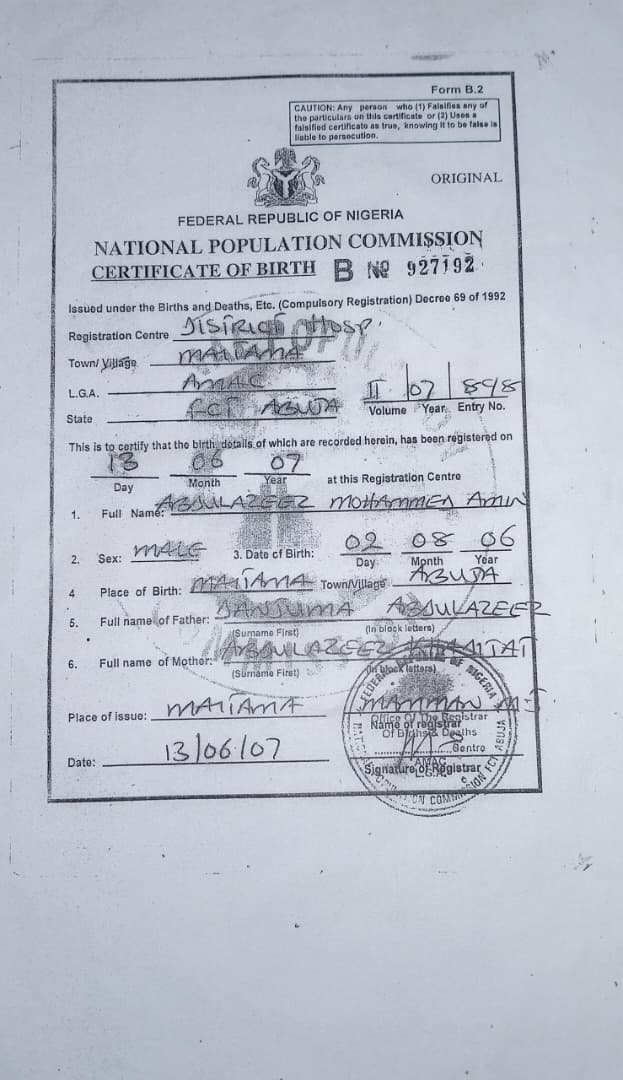 Form B.2
CAUTION: Any person who (1) Falsifies any of
the particulars on this certificate or (2) Uses a
falsified certificate as true, knowing it to be false is
liable to persecution.
ORIGINAL
FEDERAL REPUBLIC OF NIGERIA
NATIONAL POPULATION COMMISSION
CERTIFICATE OF BIRTH B No 927192
Issued under the Births and Deaths, Etc. (Compulsory Registration) Decree 69 of 1992
Registration Centre DISTRICT HOSP.
Town/Village MAITAMA
L.G.A. AMAC II / 07 / 898
State FCT ABUJA Volume Year Entry No.
This is to certify that the birth, details of which are recorded herein, has been registered on
13 06 07
Day Month Year at this Registration Centre
1. Full Name: ABDULAZEEZ MOHAMMED AMIN
2. Sex: MALE 3. Date of Birth: 02 08 06
Day Month Year
4 Place of Birth: MAITAMA Town/Village ABUJA
5. Full name of Father: DANJUMA ABDULAZEEZ
(Surname First) (In block letters)
6. Full name of Mother: ABDULAZEEZ
(Surname First) (In block letters)
Place of issue: MAITAMA MAMMAN
Name of registrar
Office Of The Registrar
Of Births & Deaths
Centre
AMAC
Date: 13/06/07
Signature of Registrar